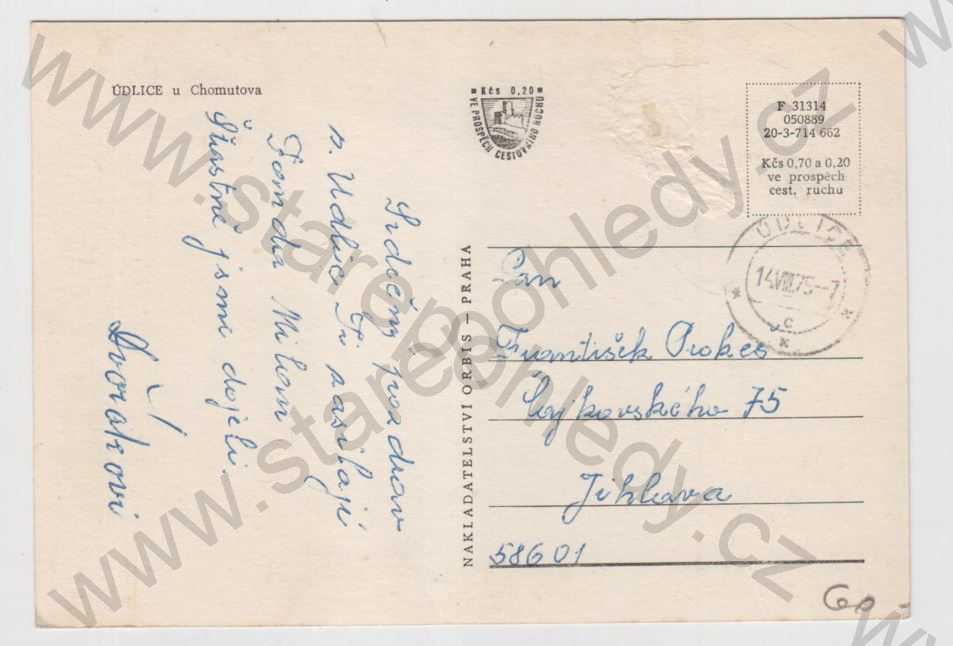 ÚDLICE u Chomutova
Srdečný pozdrav
s. Udlic Ti zasílají
Tomda Milom
Šťastně jsme dojeli.
Dvořákovi
Kčs 0,20
VE PROSPĚCH CESTOVNÍHO RUCHU
NAKLADATELSTVÍ ORBIS — PRAHA
F 31314
050889
20-3-714 662
Kčs 0,70 a 0,20
ve prospěch
cest. ruchu
ÚDLICE
14.VIII.75-7
c
Pan
František Prokeš
Čajkovského 75
Jihlava
58601
60,-
www.starepohledy.cz
www.starepohledy.cz